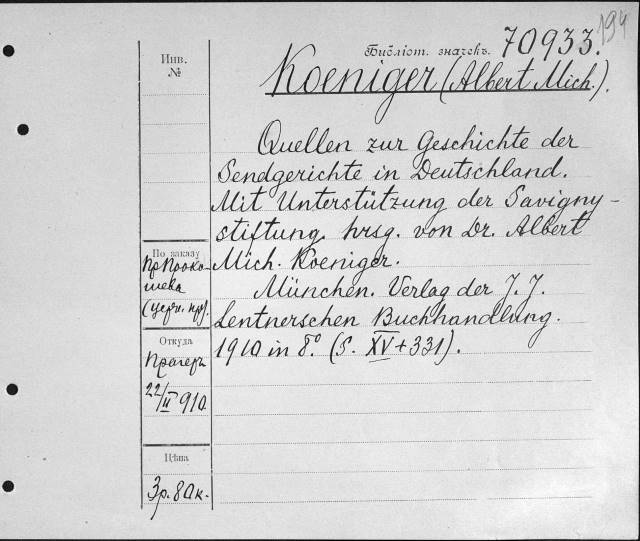 194
Библіот. значекъ. 70933.
Инв.
№
Koeniger (Albert Mich.).
Quellen zur Geschichte der
Sendgerichte in Deutschland.
Mit Unterstützung der Savigny-
stiftung hrsg. von Dr. Albert
Mich. Koeniger.
München. Verlag der J. J.
Lentnerschen Buchhandlung.
1910 in 8.° (S. XV + 331).
По заказу
Пр Проко-
шева
(церк. пр).
Откуда
Прагеръ
22/II 910
Цѣна
3 р. 80 к.